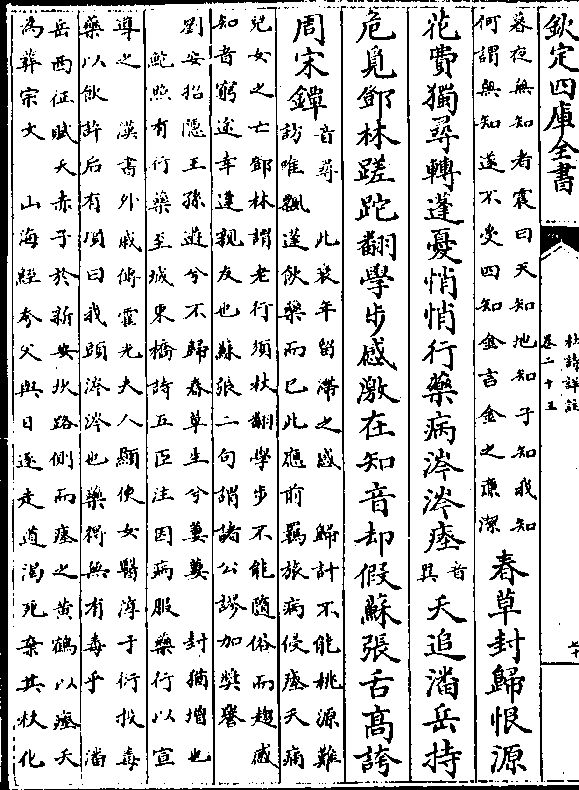 欽定四庫全書
杜詩詳註
卷二十五
暮夜無知者震曰天知地知子知我知
何謂無知遂不受四知金言金之瓌潔
春草封歸恨源
花費獨尋轉蓬憂悄悄行藥病涔涔瘞
音
翳
夭追潘岳持
危覓鄧林蹉跎翻學步感激在知音却假蘇張舌高誇
周宋鐔
音尋　此衰年留滯之感　歸計不能桃源難
訪唯飄蓬飲藥而已此應前羈旅病侵瘞夭痛
兒女之亡鄧林謂老行須杖翻學步不能隨俗而趨感
知音窮途幸逢親友也蘇張二句謂諸公謬加獎譽
劉安招隱王孫遊兮不歸春草生兮萋萋　封猶增也
鮑照有行藥至城東橋詩五臣注因病服藥行以宣
導之　漢書外戚傳霍光夫人顯使女醫淳于衍投毒
藥以飲許后有頃曰我頭涔涔也藥得無有毒乎　潘
岳西征賦夭赤子於新安坎路側而瘞之黄鶴以瘞夭
為葬宗文　山海經夸父與日逐走道渴死棄其杖化